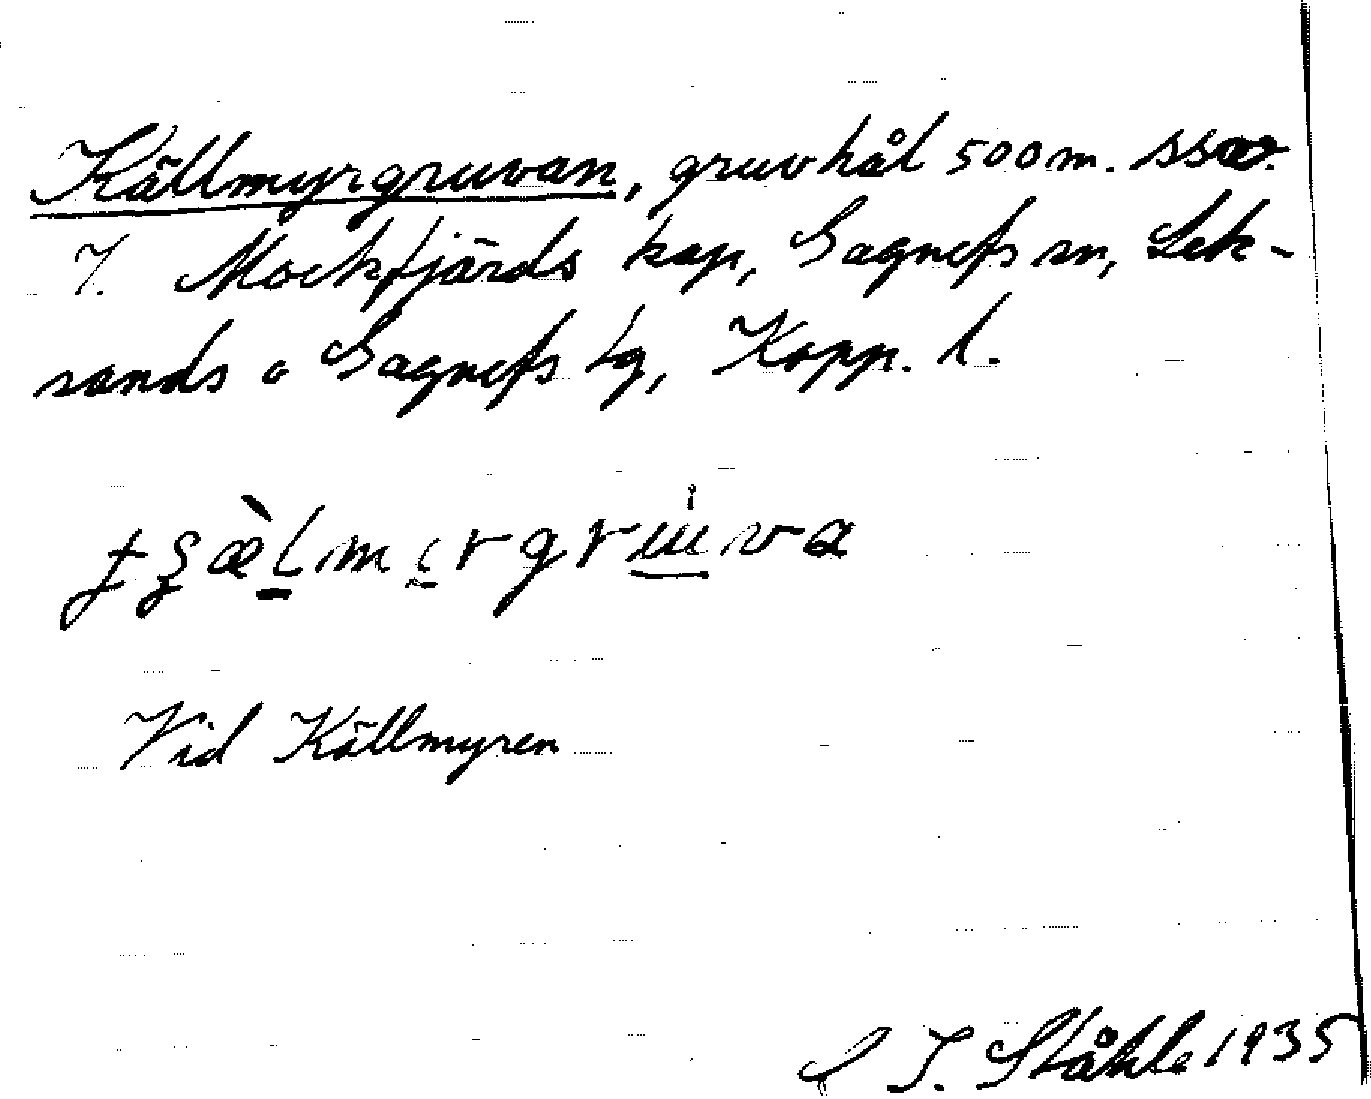 Källmyrgruvan, gruvhål 500 m. ssv.
f. Mockfjärds kap, Gagnefs sn, Lek-
sands o Gagnefs tg, Kopp. l.
Vid Källmyren
C I. Ståhle 1935